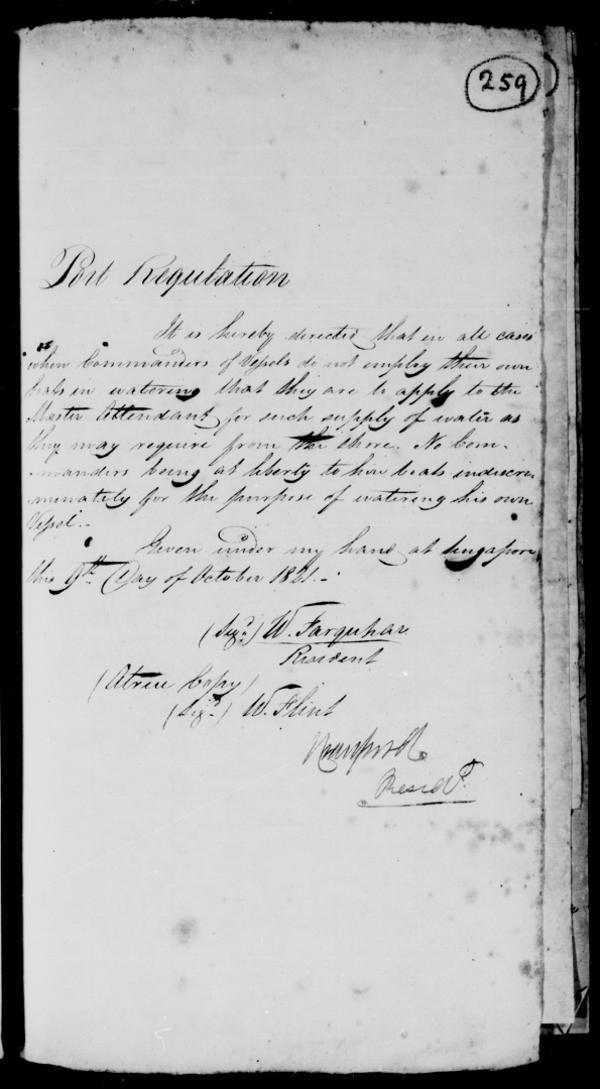 259
Port Regulation
It is hereby directed that in all cases
when Commanders of Vessels do not employ their own
boats in watering that they are to apply to the
Master Attendant for such supply of water as
they may require from the shore. No Com-
-manders being at liberty to hire boats indiscri-
-minately for the purpose of watering his own
Vessel.-
Given under my hand at Singapore
this 9th Day of October 1821.-
(Sigd) W. Farquhar
Resident
(A true Copy)
(Sigd) W. Flint
Residt.